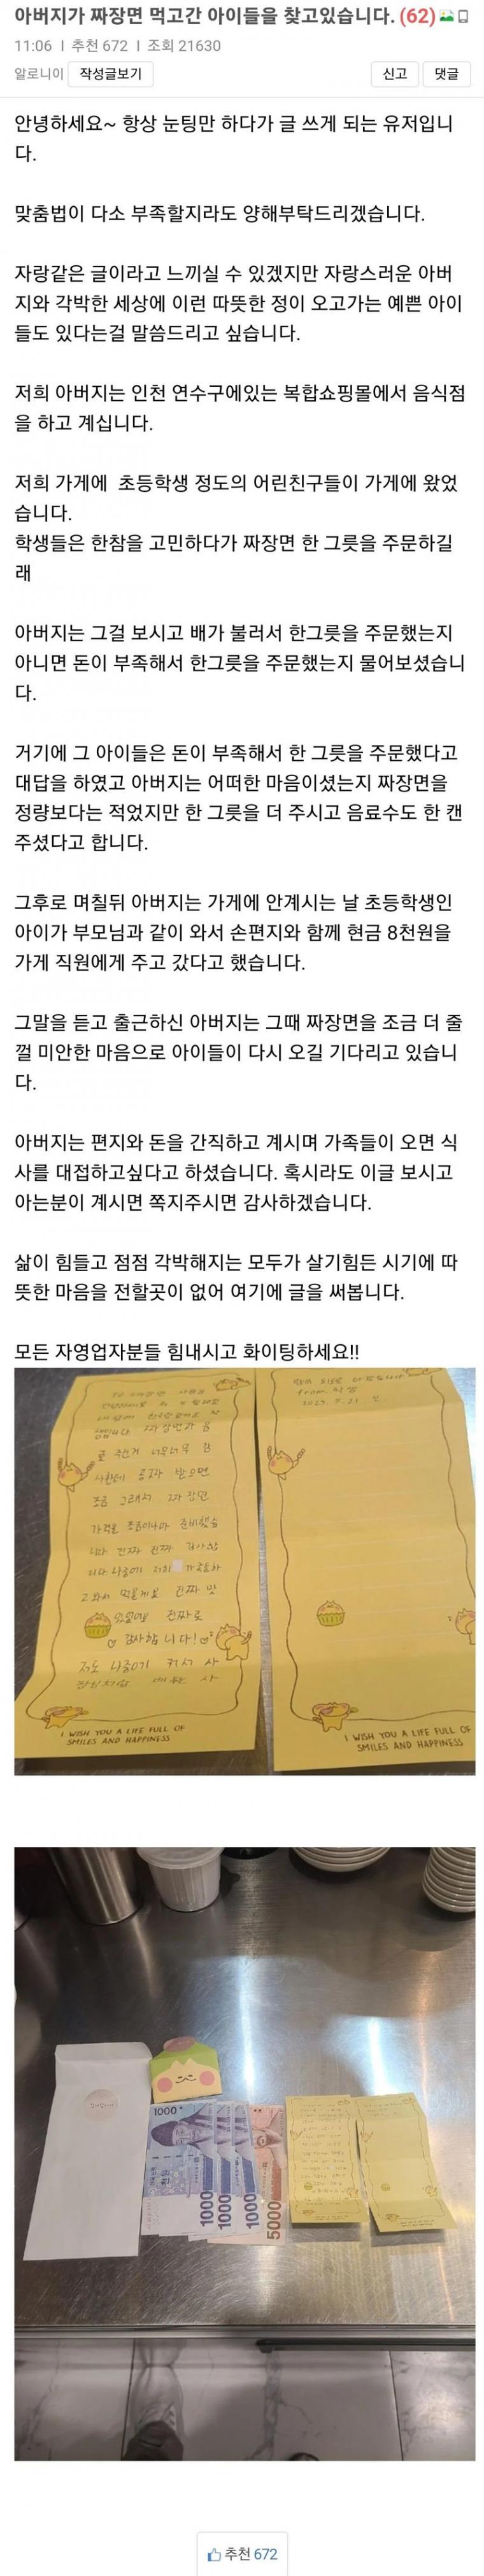 아버지가 짜장면 먹고간 아이들을 찾고있습니다. (62)
11:06 l 추천 672 l 조회 21630
알로니이 작성글보기 신고 댓글
안녕하세요~ 항상 눈팅만 하다가 글 쓰게 되는 유저입니
다.
맞춤법이 다소 부족할지라도 양해부탁드리겠습니다.
자랑같은 글이라고 느끼실 수 있겠지만 자랑스러운 아버
지와 각박한 세상에 이런 따뜻한 정이 오고가는 예쁜 아이
들도 있다는걸 말씀드리고 싶습니다.
저희 아버지는 인천 연수구에있는 복합쇼핑몰에서 음식점
을 하고 계십니다.
저희 가게에 초등학생 정도의 어린친구들이 가게에 왔었
습니다.
학생들은 한참을 고민하다가 짜장면 한 그릇을 주문하길
래
아버지는 그걸 보시고 배가 불러서 한그릇을 주문했는지
아니면 돈이 부족해서 한그릇을 주문했는지 물어보셨습니
다.
거기에 그 아이들은 돈이 부족해서 한 그릇을 주문했다고
대답을 하였고 아버지는 어떠한 마음이셨는지 짜장면을
정량보다는 적었지만 한 그릇을 더 주시고 음료수도 한 캔
주셨다고 합니다.
그후로 며칠뒤 아버지는 가게에 안계시는 날 초등학생인
아이가 부모님과 같이 와서 손편지와 함께 현금 8천원을
가게 직원에게 주고 갔다고 했습니다.
그말을 듣고 출근하신 아버지는 그때 짜장면을 조금 더 줄
껄 미안한 마음으로 아이들이 다시 오길 기다리고 있습니
다.
아버지는 편지와 돈을 간직하고 계시며 가족들이 오면 식
사를 대접하고싶다고 하셨습니다. 혹시라도 이글 보시고
아는분이 계시면 쪽지주시면 감사하겠습니다.
삶이 힘들고 점점 각박해지는 모두가 살기힘든 시기에 따
뜻한 마음을 전할곳이 없어 여기에 글을 써봅니다.
모든 자영업자분들 힘내시고 화이팅하세요!!
짜장면과 음
료 주신거 너무너무 감
사한데 공짜 받으면
조금 그래서 짜장면
가격을 조금이나마 준비했습
니다 진짜 진짜 감사합
니다 나중에 저희 가족들하
고 와서 먹을게요 진짜 맛
있었어요 진짜로
감사합니다!
저도 나중에 커서 사
I WISH YOU A LIFE FULL OF
SMILES AND HAPPINESS
I WISH YOU A LIFE FULL OF
SMILES AND HAPPINESS
1000
1000
1000
1000
5000
추천 672